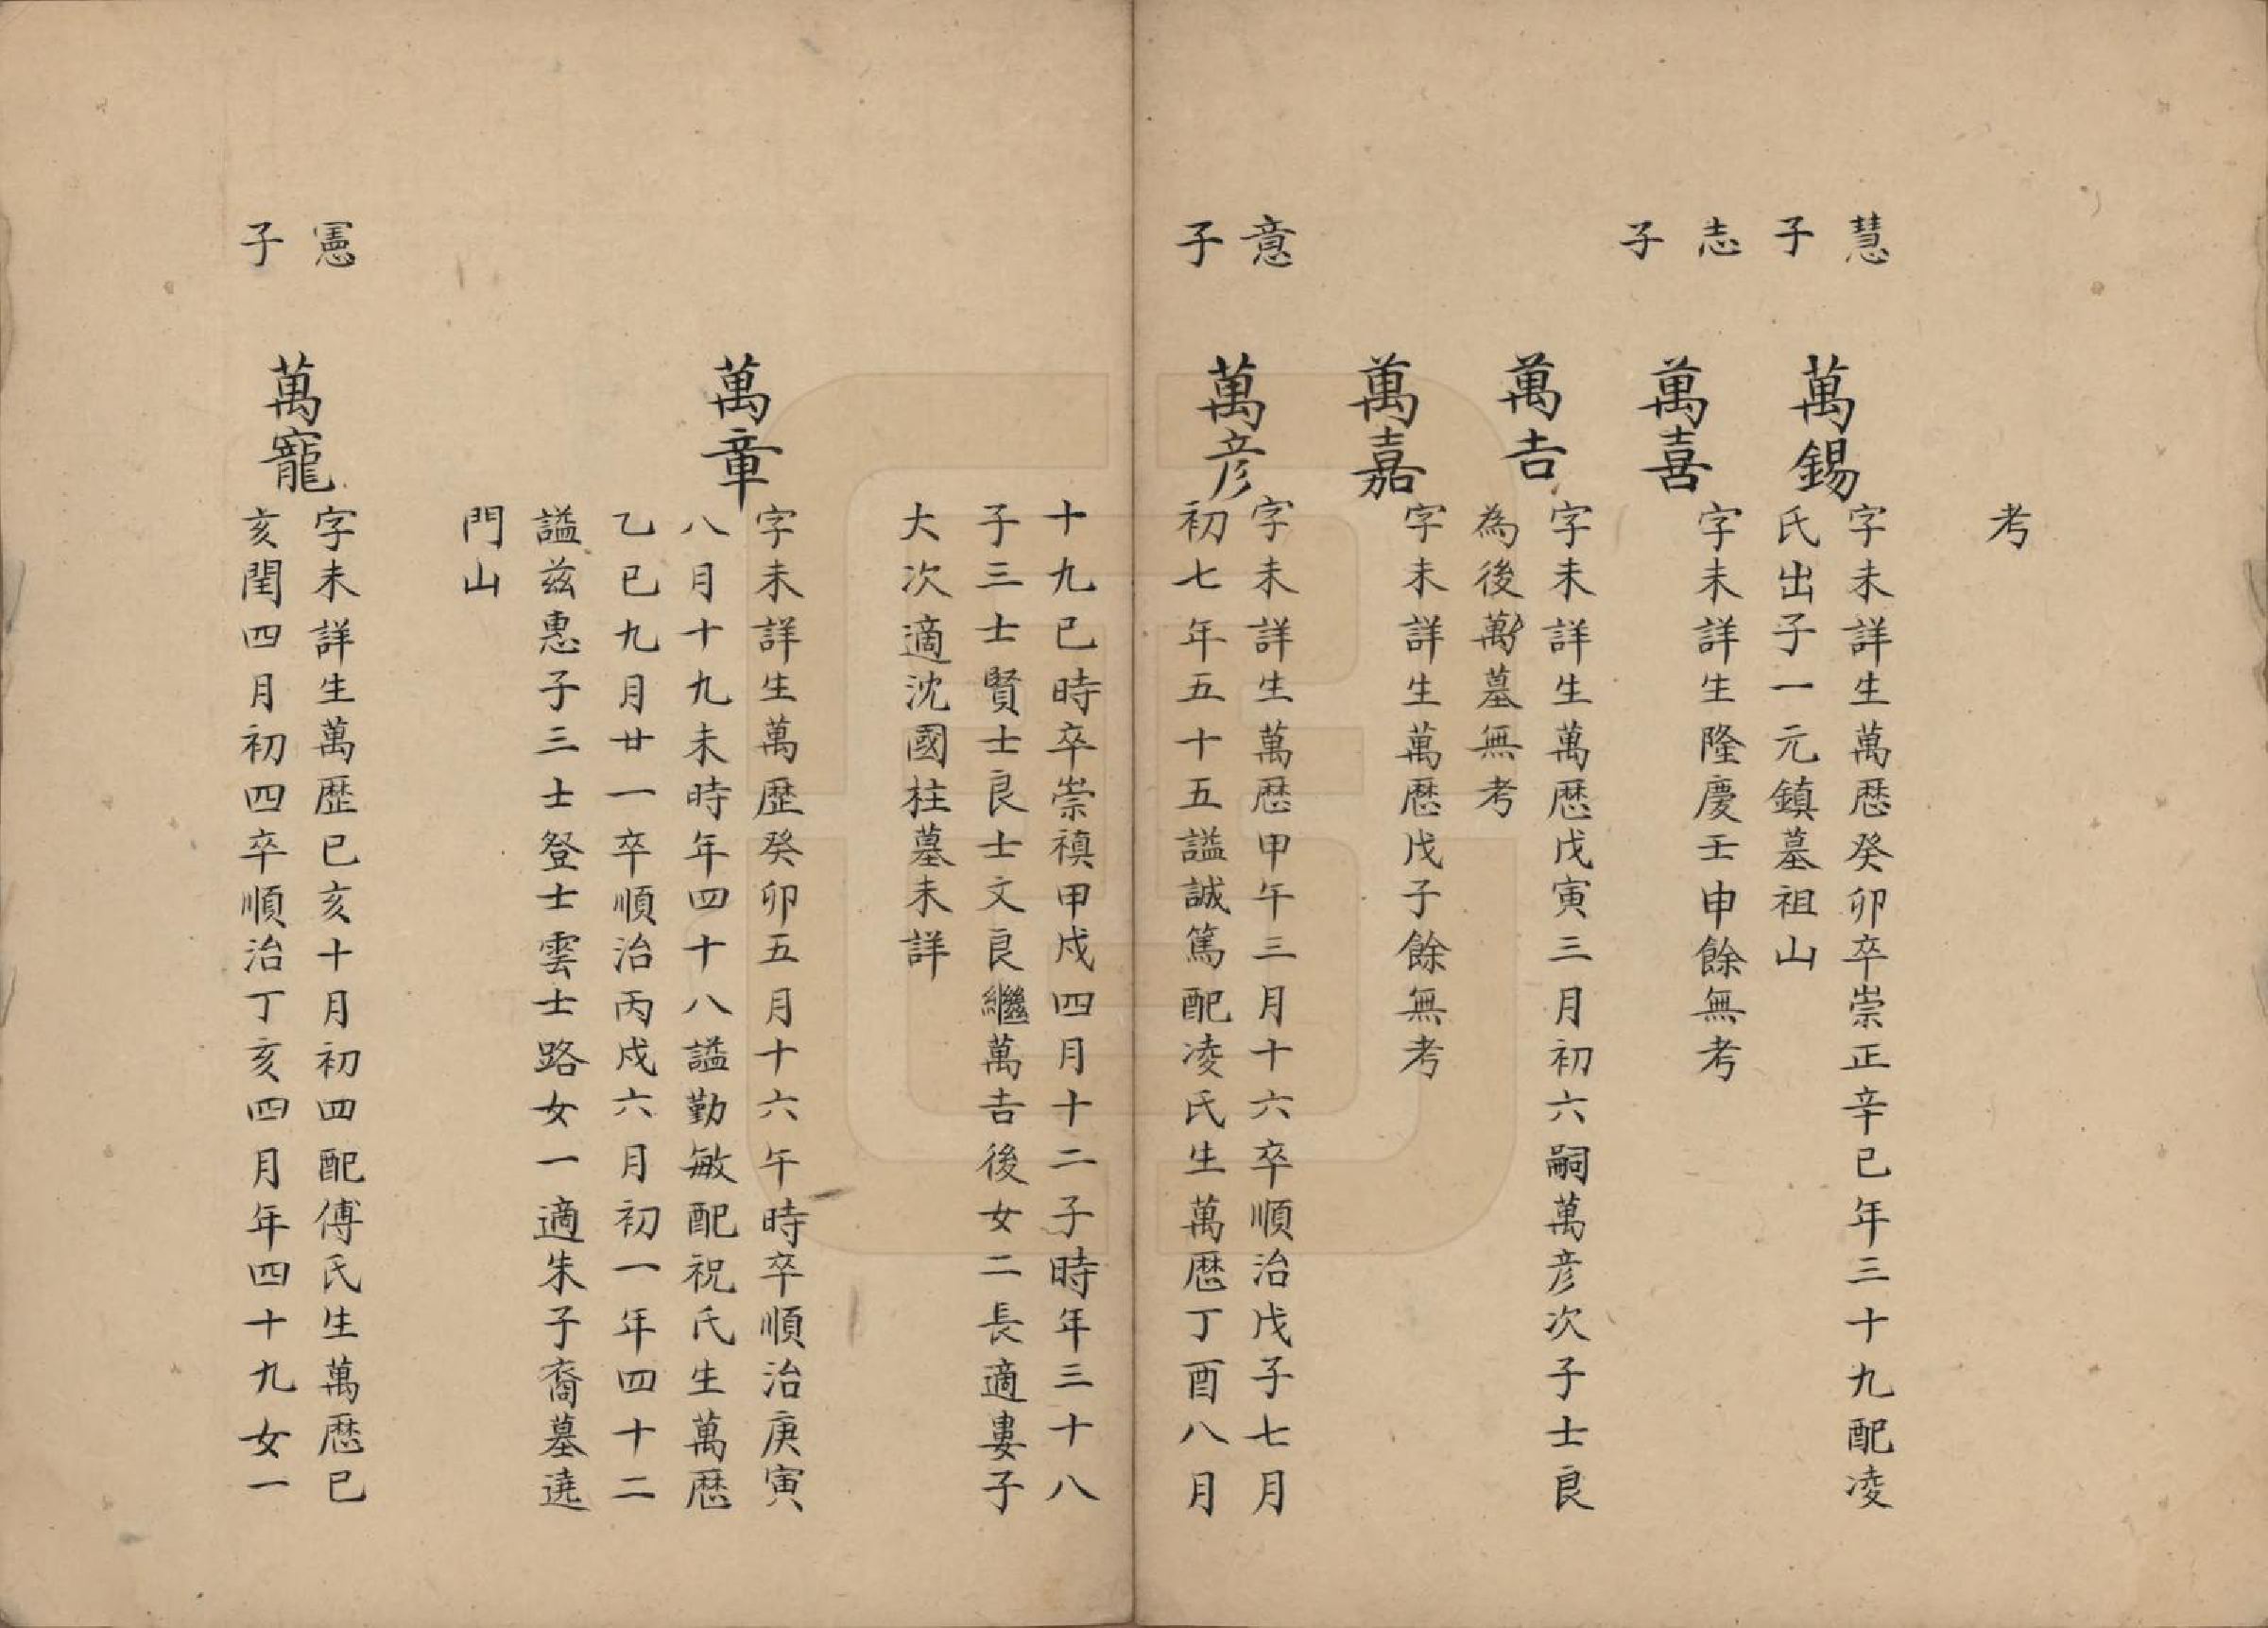 考
慧子
萬錫
字未詳生萬厯癸卯卒崇正辛巳年三十九配凌
氏出子一元鎮墓祖山
志子
萬喜
字未詳生隆慶壬申餘無考
萬吉
字未詳生萬厯戊寅三月初六嗣萬彥次子士良
為後萬墓無考
萬嘉
字未詳生萬厯戊子餘無考
意子
萬彥
字未詳生萬厯甲午三月十六卒順治戊子七月
初七年五十五謚誠篤配凌氏生萬厯丁酉八月
十九巳時卒崇禎甲戌四月十二子時年三十八
子三士賢士良士文良繼萬吉後女二長適婁子
大次適沈國柱墓未詳
萬章
字未詳生萬歷癸卯五月十六午時卒順治庚寅
八月十九未時年四十八謚勤敏配祝氏生萬厯
乙巳九月廿一卒順治丙戌六月初一年四十二
謚兹惠子三士登士雲士路女一適朱子裔墓遶
門山
憲子
萬寵
字未詳生萬歷己亥十月初四配傅氏生萬厯己
亥閏四月初四卒順治丁亥四月年四十九女一